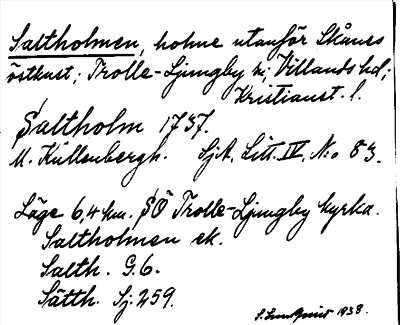 Saltholmen, holme utanför Skånes
östkust; Trolle-Ljungby sn; Villands hd;
Kristianst. l.
Saltholm 1737.
M. Kullenbergh. SjA. Litt. IV, No 83.
Läge 6,4 km. SÖ Trolle-Ljungby kyrka.
Saltholmen ek.
Salth. G.6.
Sätth. Sj. 259.
S. Lundquist 1938.